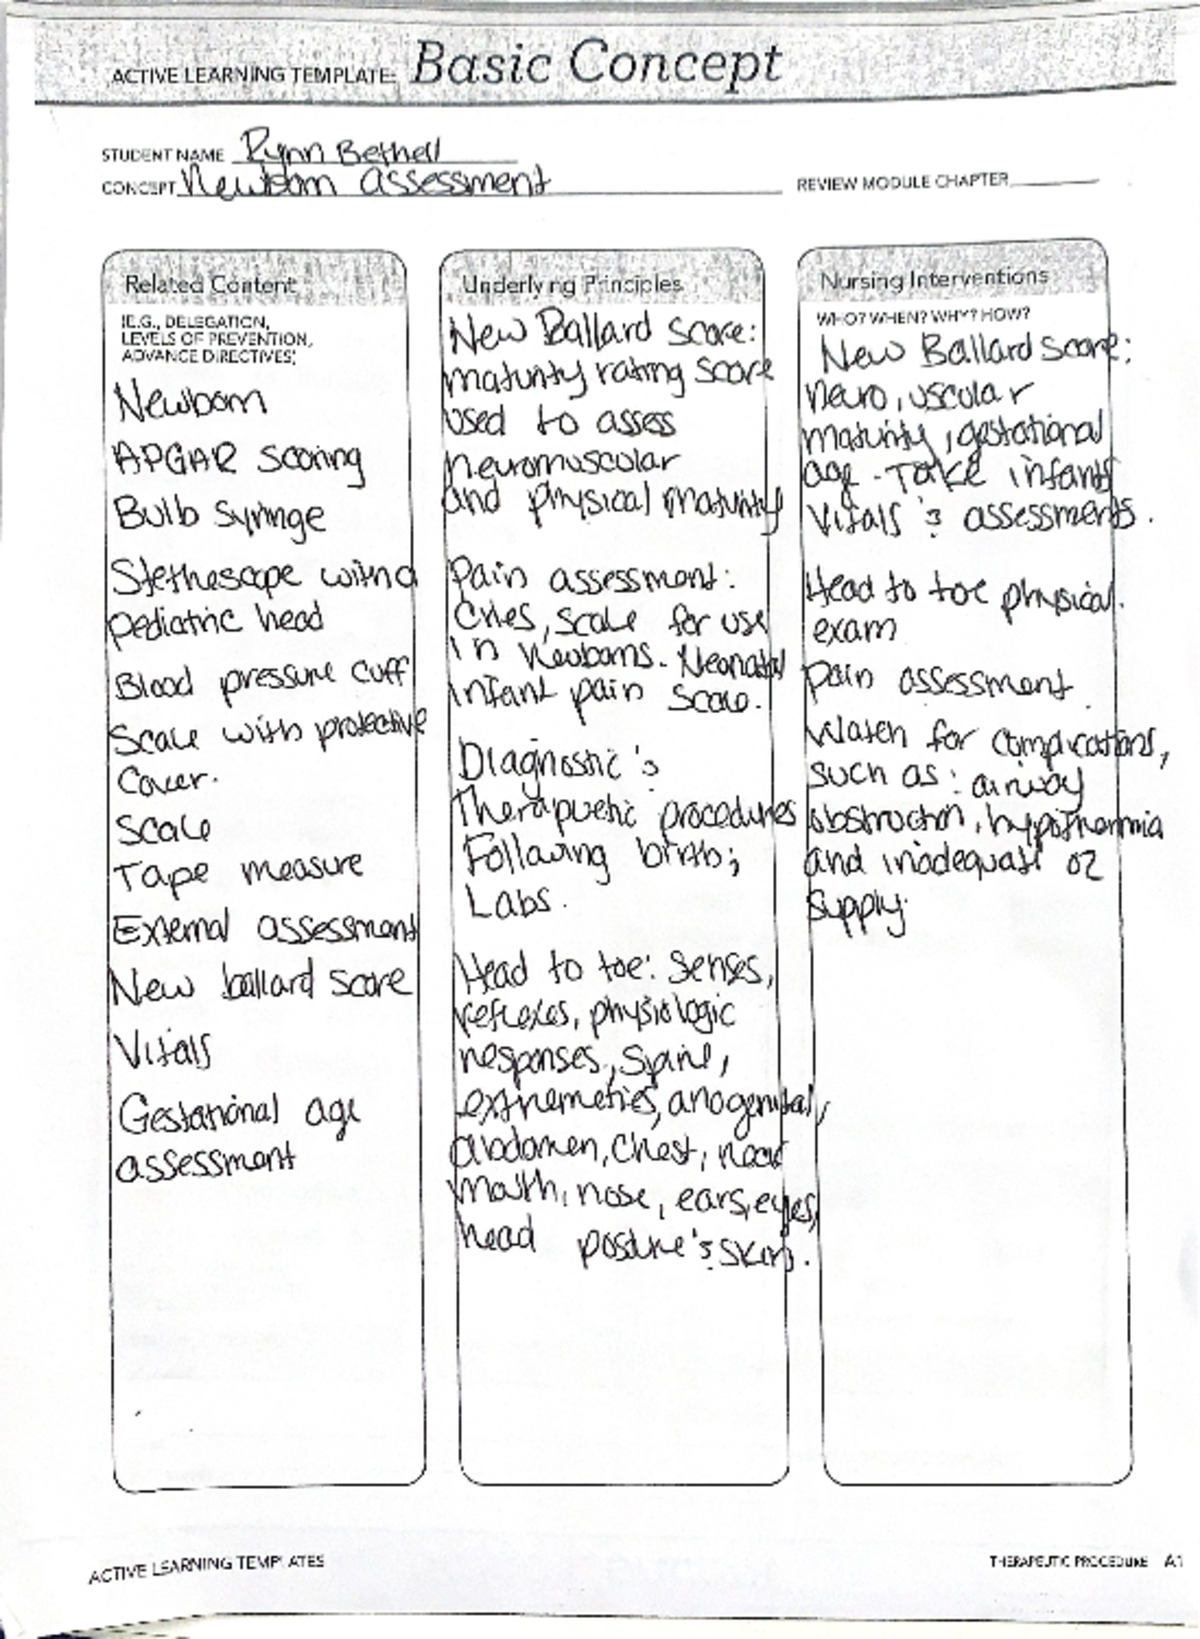 ACTIVE LEARNING TEMPLATE: Basic Concept
STUDENT NAME Rynn Bethell
CONCEPT Newborn assessment
REVIEW MODULE CHAPTER
Related Content
(E.G., DELEGATION,
LEVELS OF PREVENTION,
ADVANCE DIRECTIVES)
Newborn
APGAR scoring
Bulb syringe
Stethescope with a
pediatric head
Blood pressure cuff
Scale with protective
cover.
Scale
Tape measure
External assessment
New ballard score
Vitals
Gestational age
assessment
Underlying Principles
New Ballard Score:
maturity rating score
used to assess
neuromuscular
and physical maturity
Pain assessment:
Cries, scale for use
in newborns. Neonatal
infant pain scale.
Diagnostic &
Therapuetic procedures
Following birth;
Labs.
Head to toe: senses,
reflexes, physiologic
responses, spine,
extremeties, anogenital,
abdomen, chest, neck
mouth, nose, ears, eyes,
head posture & skin.
Nursing Interventions
WHO? WHEN? WHY? HOW?
New Ballard score:
neuro, uscular
maturity, gestational
age - Take infants
vitals & assessments.
Head to toe physical.
exam
pain assessment
Watch for complications,
such as: airway
obstruction, hypothermia
and inadequate O2
supply.
ACTIVE LEARNING TEMPLATES
THERAPEUTIC PROCEDURE A1